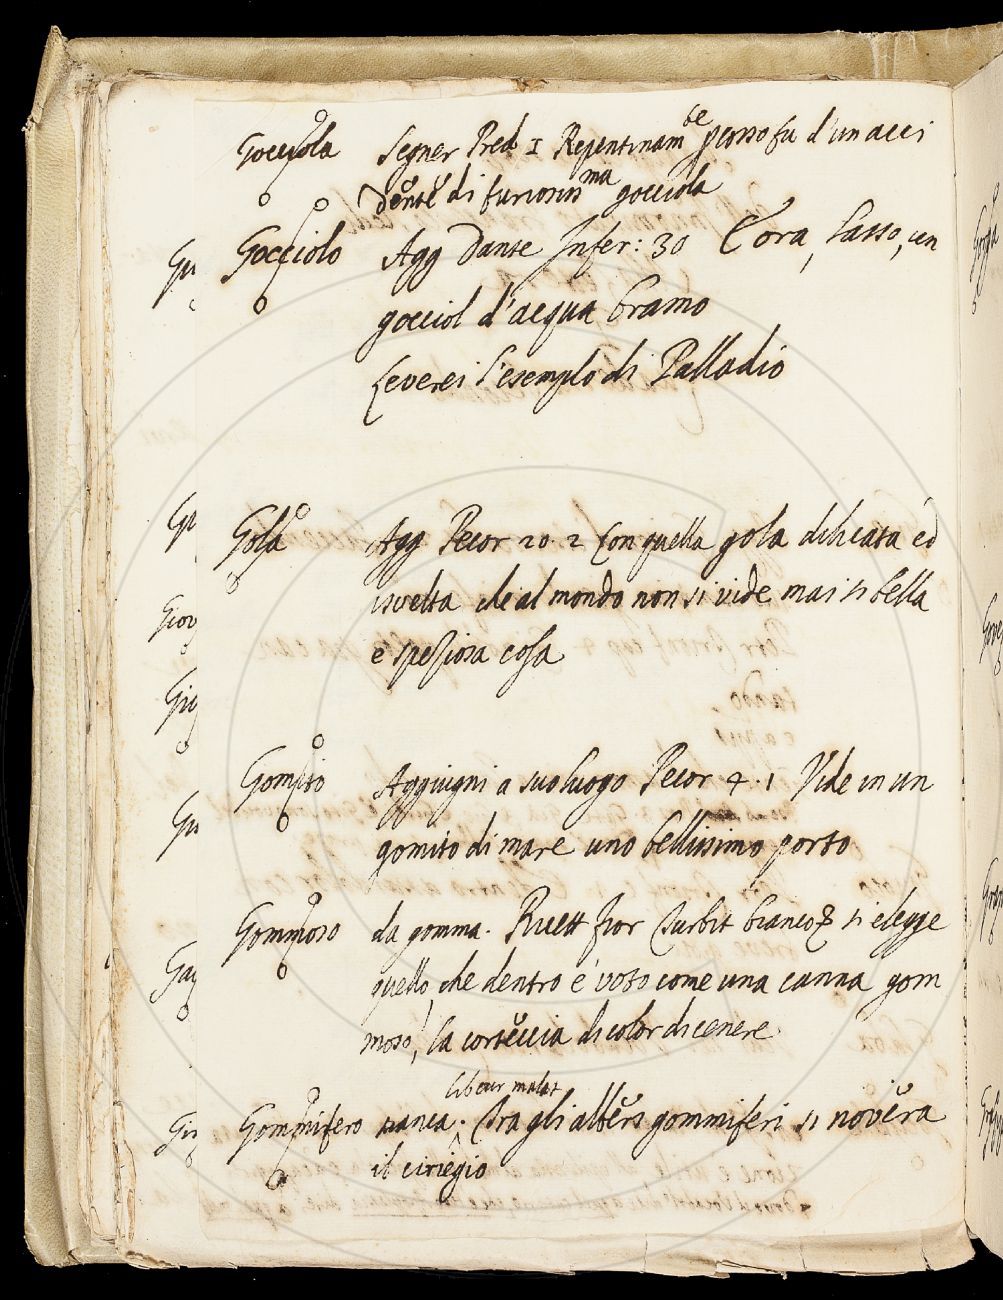 Gocciola Segner Pred. I Repentinam.te perso fu d'un acci
dente di furiosis.ma gocciola
Gocciolo Agg Dante Infer: 30 E ora, lasso, un
gocciol d'acqua bramo
Leverei l'esemplo di Palladio
Gola Agg Pecor 20. 2 Con quella gola dilicata ed
isvelta che al mondo non si vide mai si bella
e speziosa cosa
Gomito Aggiugni a suo luogo Pecor 4. 1 Vide in un
gomito di mare uno bellissimo porto
Gommoso da gomma. Ricett fior Turbit bianco si elegge
quello, che dentro è voto come una canna gom
moso, la corteccia di color di cenere
lib cur malat
Gommifero manca. Tra gli alberi gommiferi si novera
il ciriegio